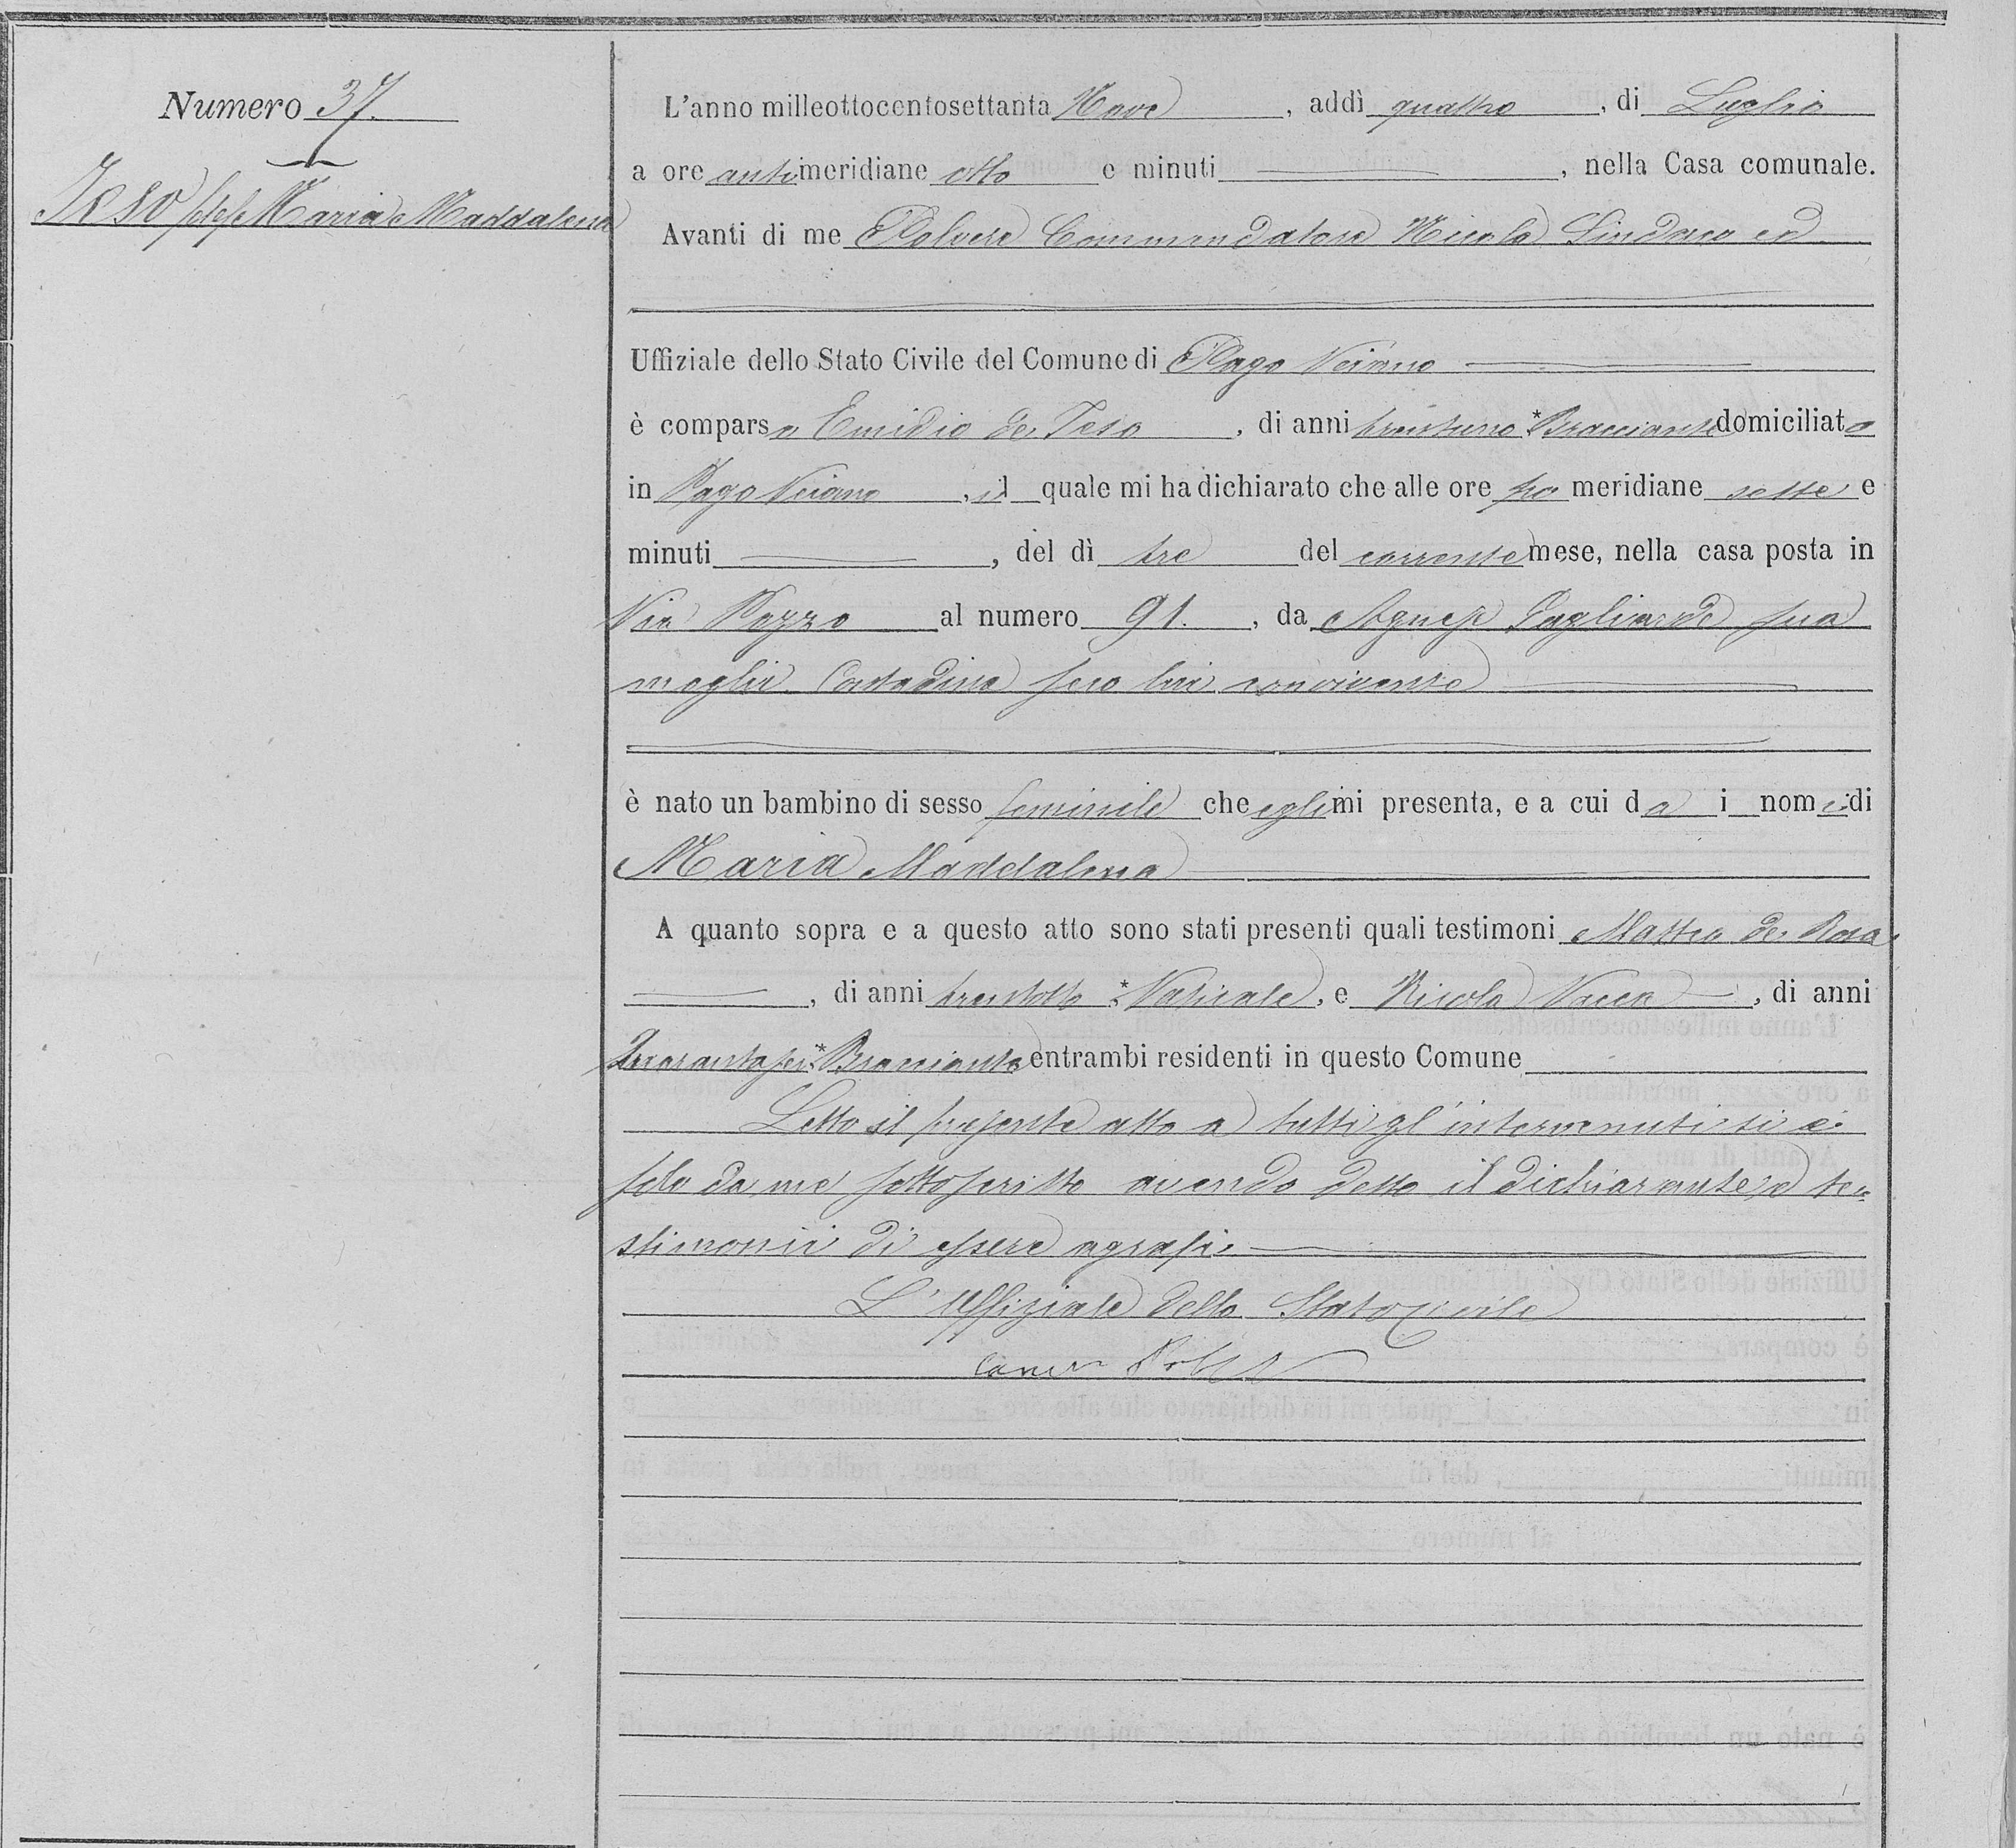 Numero 37.
Teso de Maria Maddalena
L'anno milleottocentosettanta Nove, addì quattro, di Luglio
a ore antimeridiane otto e minuti, nella Casa comunale.
Avanti di me Polvere Commendatore Nicola Sindaco ed
Uffiziale dello Stato Civile del Comune di Pago Veiano
è comparso Emidio de Teso, di anni trentuno *Bracciante domiciliato
in Pago Veiano, il quale mi ha dichiarato che alle ore po meridiane sette e
minuti, del dì tre del corrente mese, nella casa posta in
Via Pozzo al numero 91., da Agnese Gagliarde sua
moglie Contadina seco lui convivente
è nato un bambino di sesso feminile che egli mi presenta, e a cui da i nomi di
Maria Maddalena
A quanto sopra e a questo atto sono stati presenti quali testimoni Matteo de Rosa
, di anni trentotto *Vaticale, e Nicola Vacca, di anni
Quarantasei *Bracciante entrambi residenti in questo Comune
Letto il presente atto a tutti gl'intervenuti si è
solo da me sottoscritto avendo detto il dichiarante e te-
stimonii di essere agrafi.
L'Uffiziale dello Stato Civile